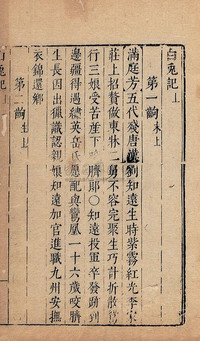 白兔記上
第一齣末上
滿庭芳五代殘唐漢劉知遠生時紫霧紅光李家
莊上招贅做東牀二舅不容完聚生巧計折散
行三娘受苦產下咬臍郎〇知遠投軍卒發跡到
邊疆得遇繡英岳氏愿配與鸞凰一十六歲咬臍
生長因出獵識認親娘知遠加官進職九州安撫
衣錦還鄉
第二齣生上